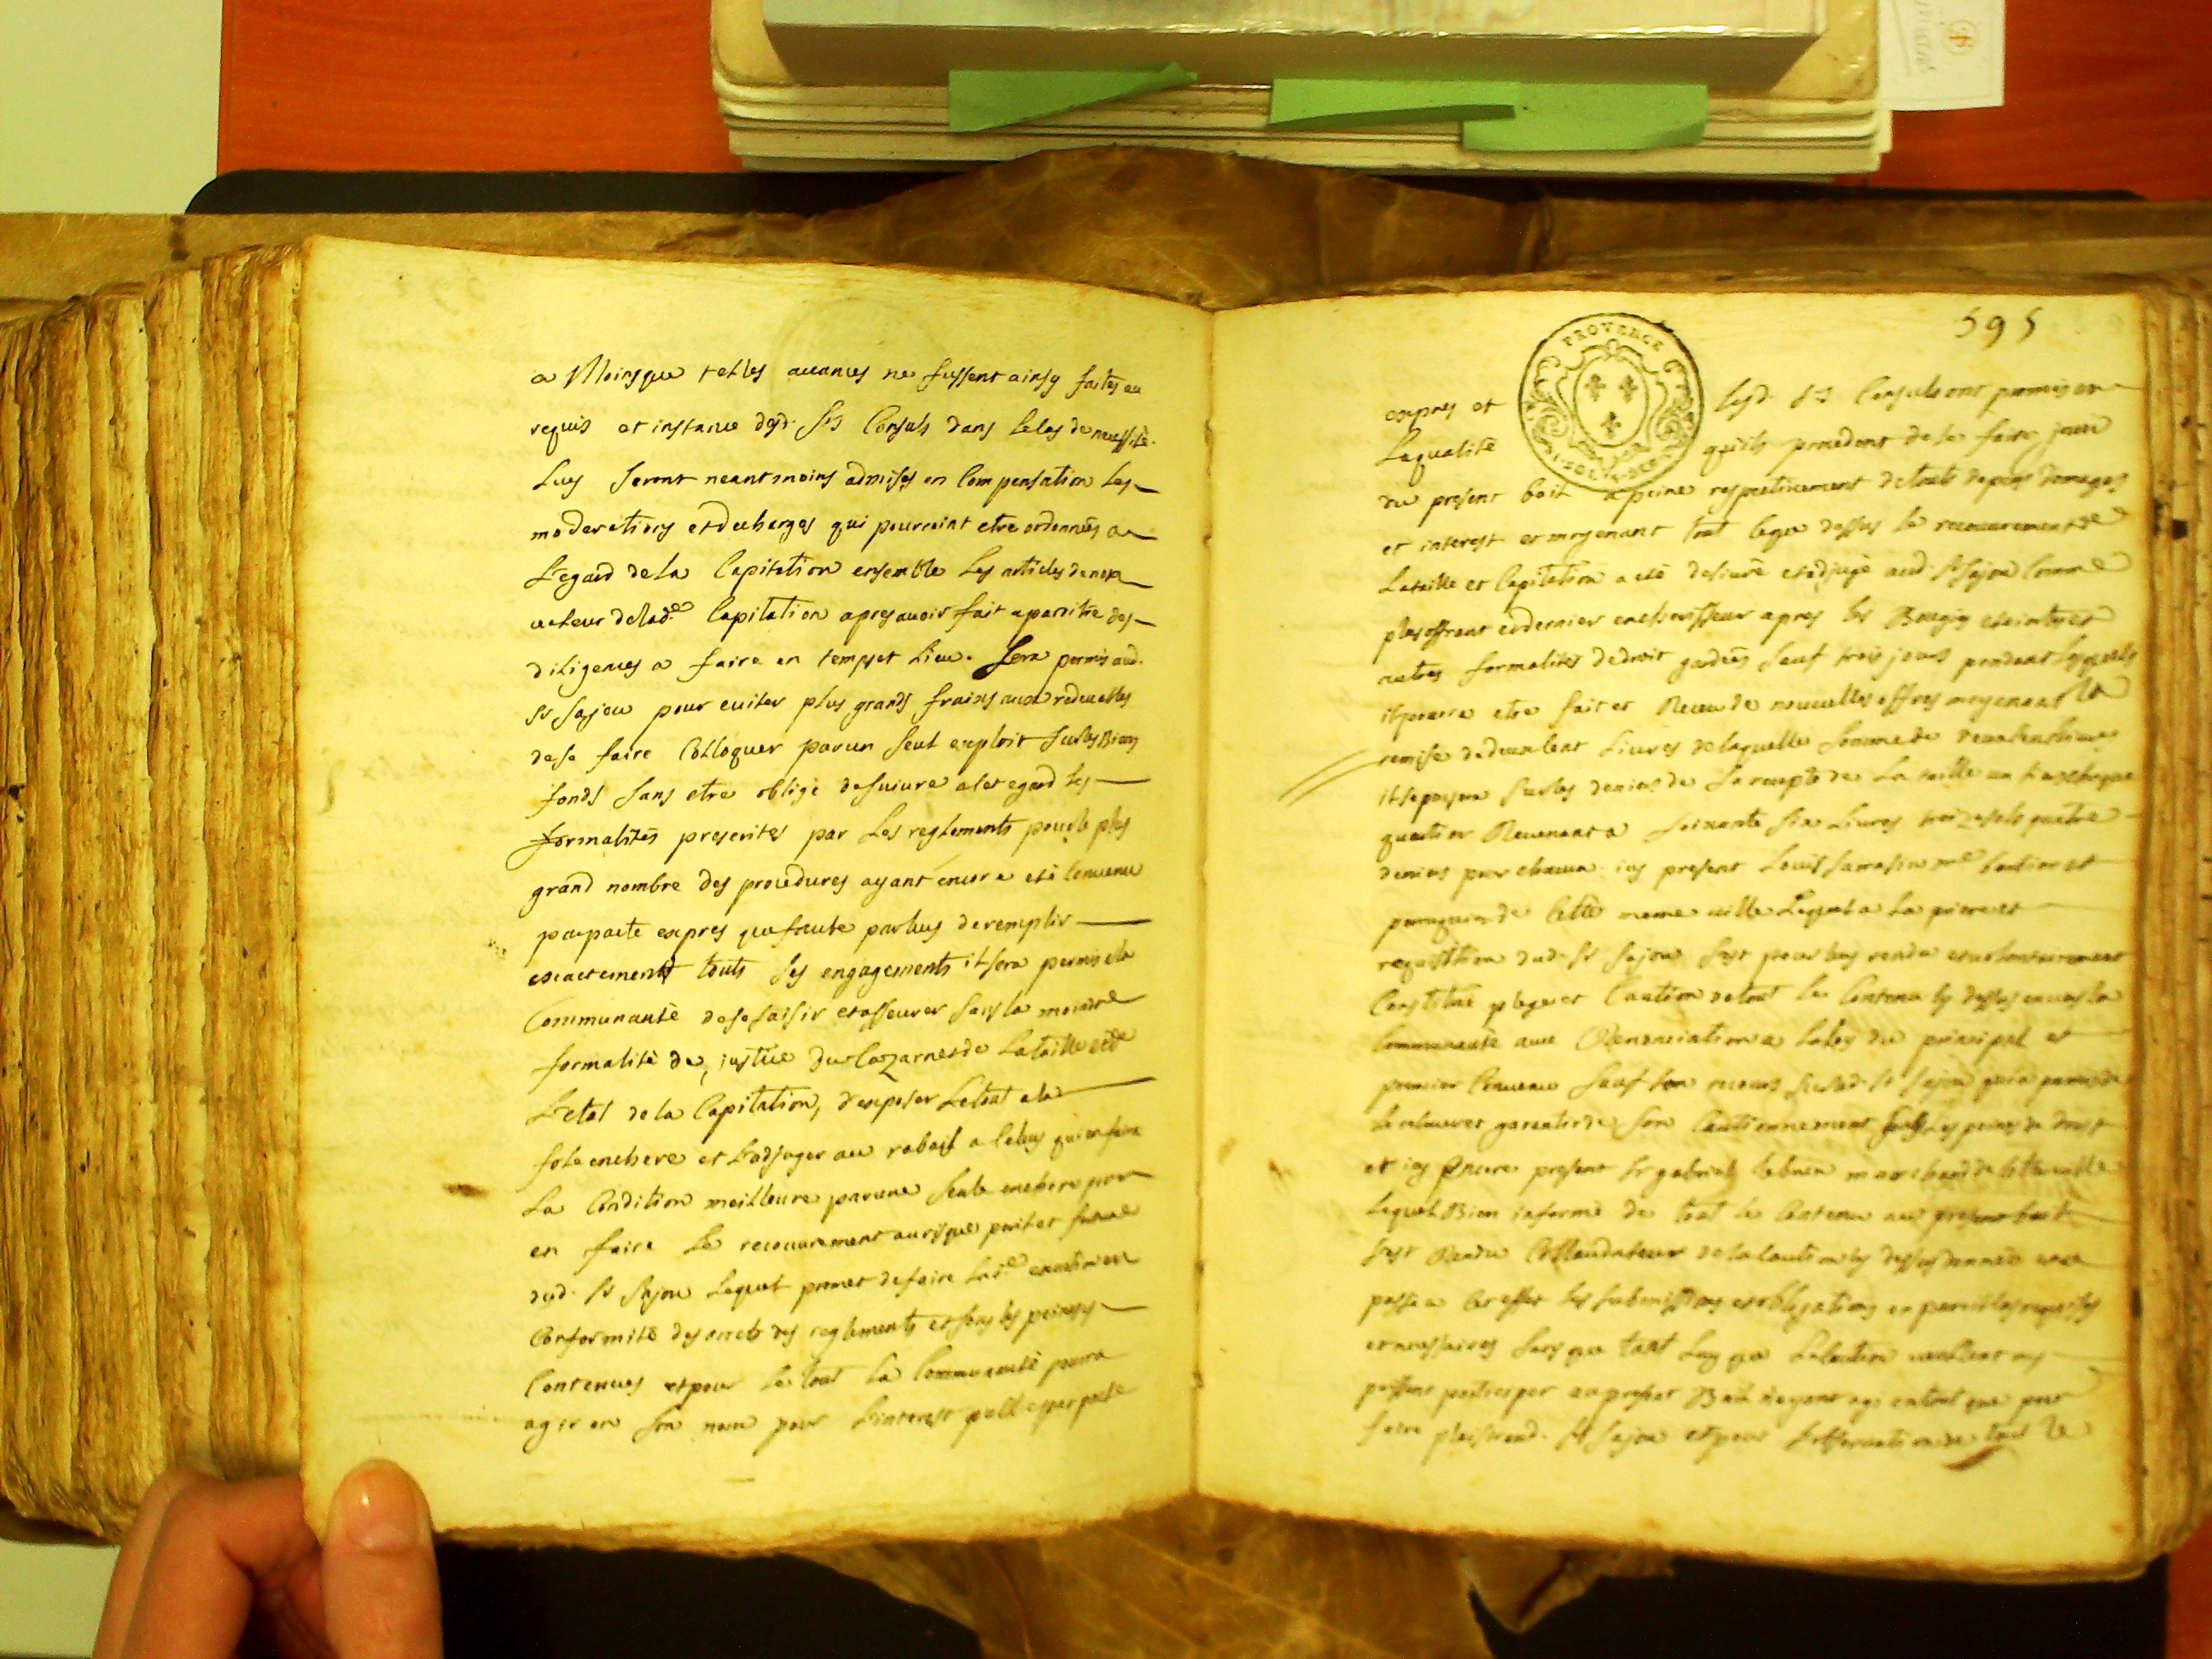 a Moinsque telles avances ne fussent ainsy faites au
requis et instance desd. Srs Consuls dans le cas de necessité.
Luy seront neantmoins admises en Compensation Les
moderations et decharges qui pourroint etre ordonnées a
L'egard de la Capitation ensemble Les articles de non
valeur de lad.e Capitation apres avoir fait aparoitre des
diligences a faire en temps et Lieu. Sera permis aud.
Sr Sajou pour eviter plus grands fraix aux redevables
de se faire Colloquer par un seul exploit sur les Biens
fonds sans etre obligé de suivre a cet egard les
formalités prescrites par Les reglements pour le plus
grand nombre des procedures ayant encore eté Convenu
par pacte expres que faute par luy de remplir
exactement touts ses engagements il sera permis a la
Communauté de se saisir et asseurer sans la moindre
formalité de justice du Cazarnet de La taille et de
L'etat de la Capitation, d'exposer Letout a la
fole enchere et L'adjuger au rabais a Celuy qui en faira
La Condition meilleure par une seule enchere pour
en faire le recouvrement au risque peril et fortune
dud. Sr Sajou Lequel promet de faire lad.e exaction en
Conformité des arrets des reglements et sous les peines y
Contenues et pour le tout La Communauté pourra
agir en son nom pour L'interest public par pacte
595
PROVENCE
expres et lesd. Srs Consuls ont promis en
Laqualité quils procedent de le faire jouir
du present bail a peine respectivement de touts depens domages
et interest et moyenant tout Ceque dessus le recouvrement de
La taille et Capitation a eté delivré et adjugé aud. Sr Sajou Comme
plus offrant et dernier encherisseur apres les Bougies eteintes et
autres formalités de droit gardées sauf trois jours pendant Lesquels
il pourra etre fait et Receu de nouvelles offres moyenant la
remise de deux cent Livres de laquelle somme de deux cent livres
il se payera sur les deniers de La recepte de La taille un tiers chaque
quartier Revenant a soixante six Livres treize sols quatre
deniers pour chacun. icy present Louis Sarrasin me
perruquier de Cette meme ville Lequel a La priere et
requisition dud. Sr Sajou s'est pour luy rendu et volontairement
Constitué plege et Caution de tout le Contenu cy dessus envers la
Communauté avec Renonciation a la loy du principal et
premier Convenu sauf son recours sur led. Sr Sajou qui a promis de
le relever et garantir de son Cautionnement sous les peines de droit
et icy encore present Sr gabriel lebrun marchand de cette ville
Lequel Bien informé de tout le Contenu au present bail
s'est Rendu Collaudateur de la Caution cy dessus donnée et a
passé a Cet effet les submissions et obligations en pareil cas requises
et necessaires sans que tant Luy que La Caution
puissent participer au present Bail n'ayant agi en tout que pour
faire plaisir aud. Sr Sajou et pour L'observation de tout le